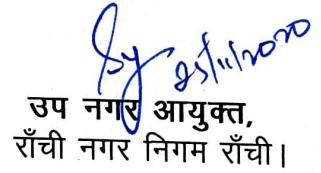 25/11/2020
उप नगर आयुक्त,
राँची नगर निगम राँची।